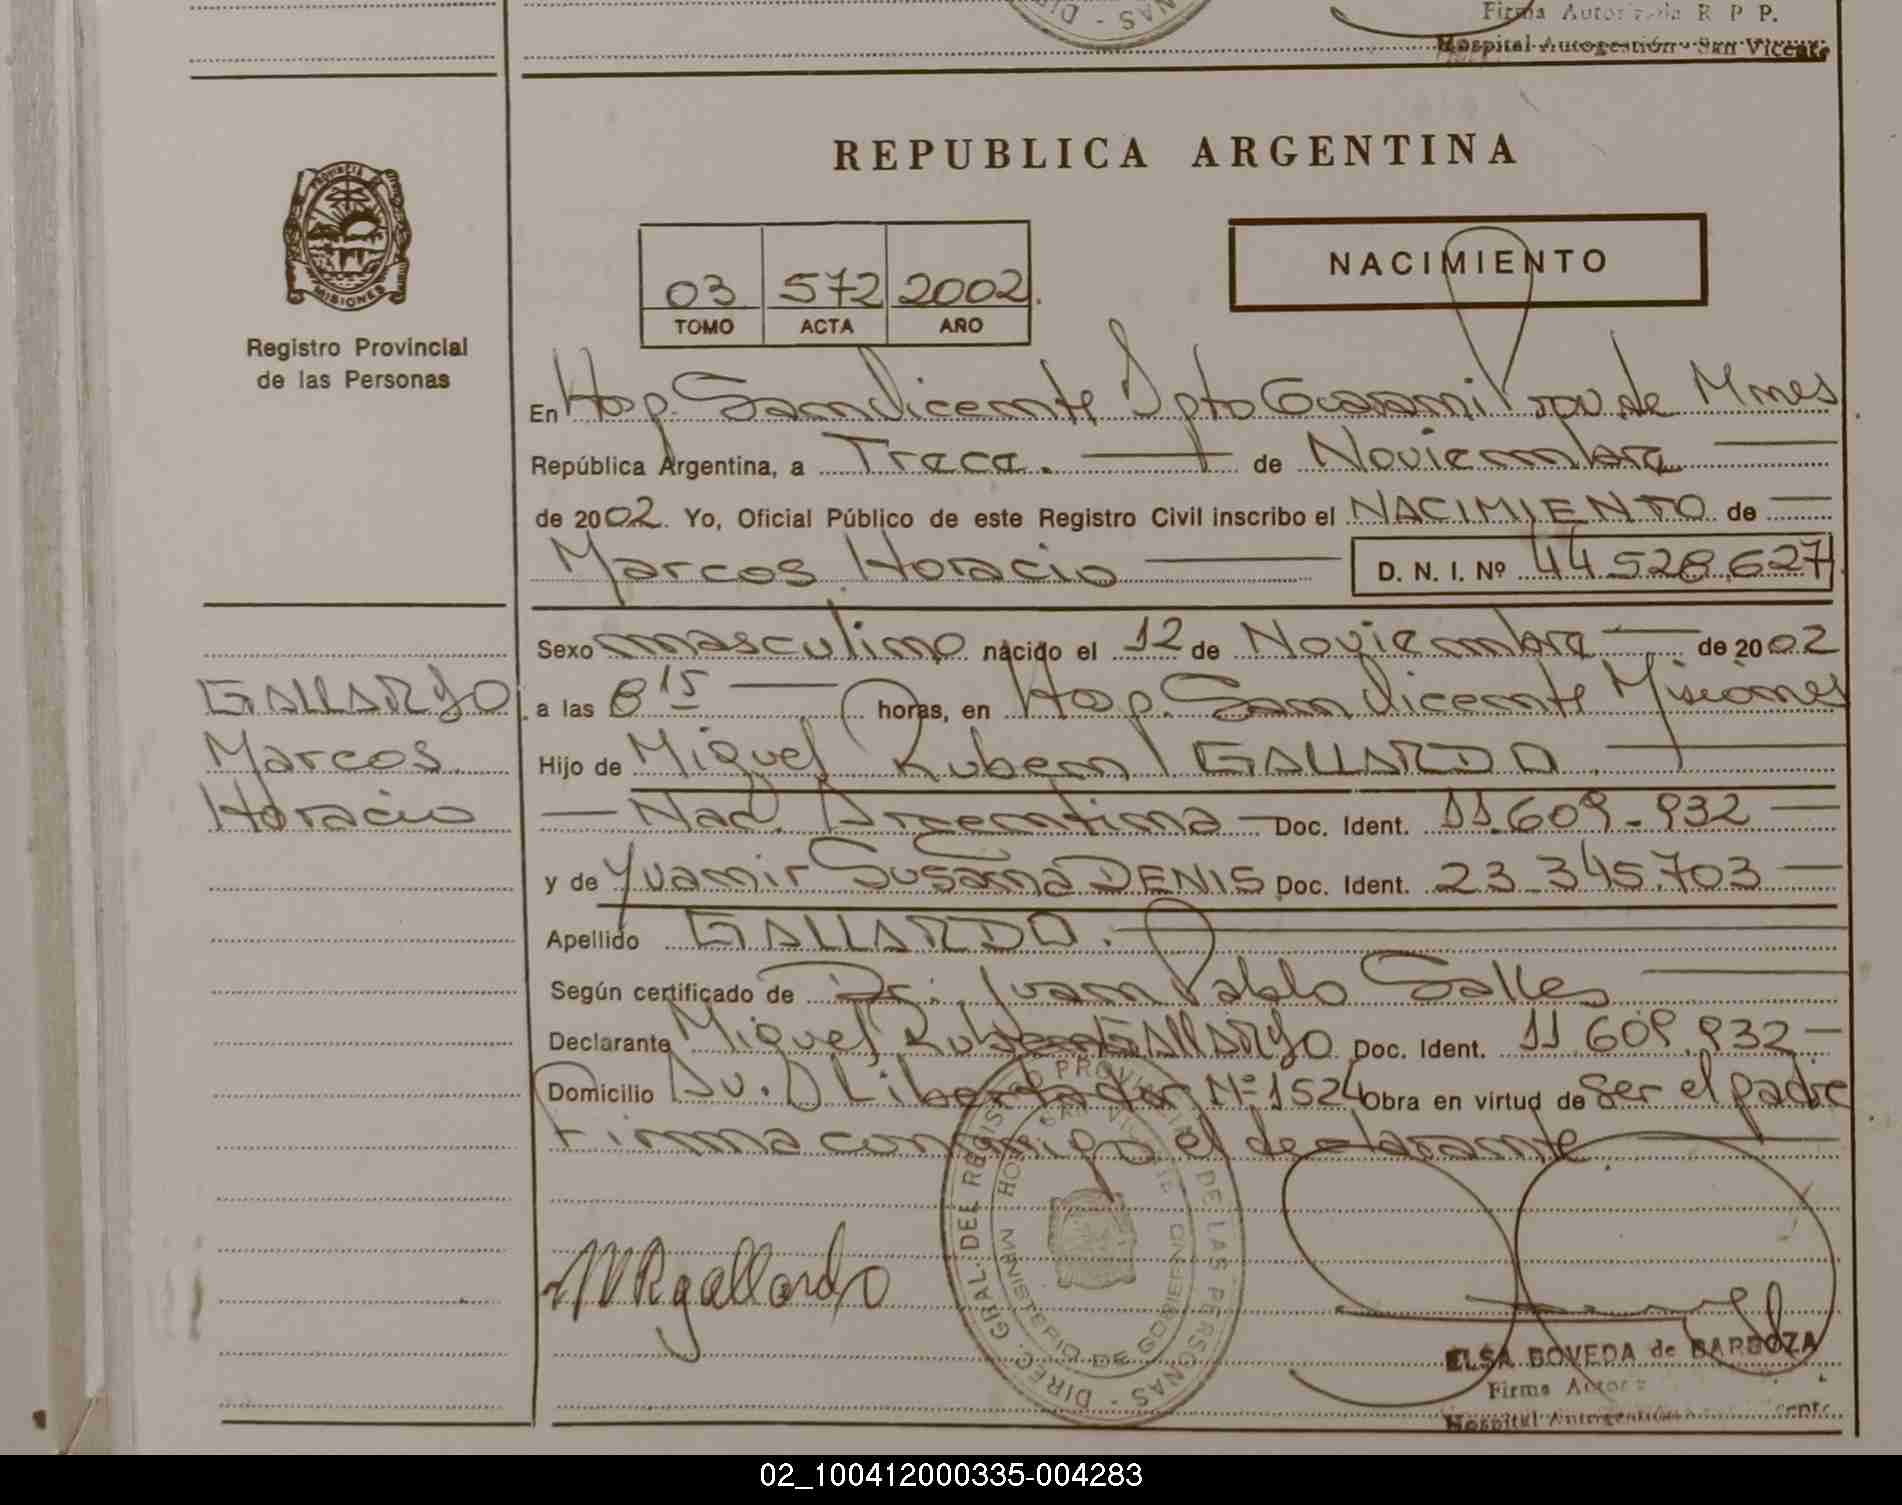 Firma Autorizada R P P.
Hospital Autogestión San Vicente
REPUBLICA ARGENTINA
PROVINCIA DE MISIONES
Registro Provincial
de las Personas
03 572 2002
TOMO ACTA AÑO
NACIMIENTO
En Hosp. San Vicente Dpto Guarani Prov de Mnes
República Argentina, a Trece. de Noviembre
de 2002. Yo, Oficial Público de este Registro Civil inscribo el NACIMIENTO de
Marcos Horacio D. N. I. Nº 44.528.627
Sexo masculino nacido el 12 de Noviembre de 2002
a las 8 15 horas, en Hosp. San Vicente Misiones
Hijo de Miguel Ruben GALLARDO.
Nac. Argentina Doc. Ident. 11.609.932
y de Yuamir Susana DENIS Doc. Ident. 23.345.703
Apellido GALLARDO.
Según certificado de Dr. Juan Pablo Salles
Declarante Miguel Ruben GALLARDO Doc. Ident. 11.609.932
Domicilio Av. Libertador Nº 1524 Obra en virtud de ser el padre
Firma conmigo el declarante.
GALLARDO
Marcos
Horacio
MRgallardo
DIREC. GRAL. DEL REGISTRO PROVINCIAL DE LAS PERSONAS
MINISTERIO DE GOBIERNO
ELSA BOVEDA de BARBOZA
Firma
Hospital Autogestión
02_100412000335-004283